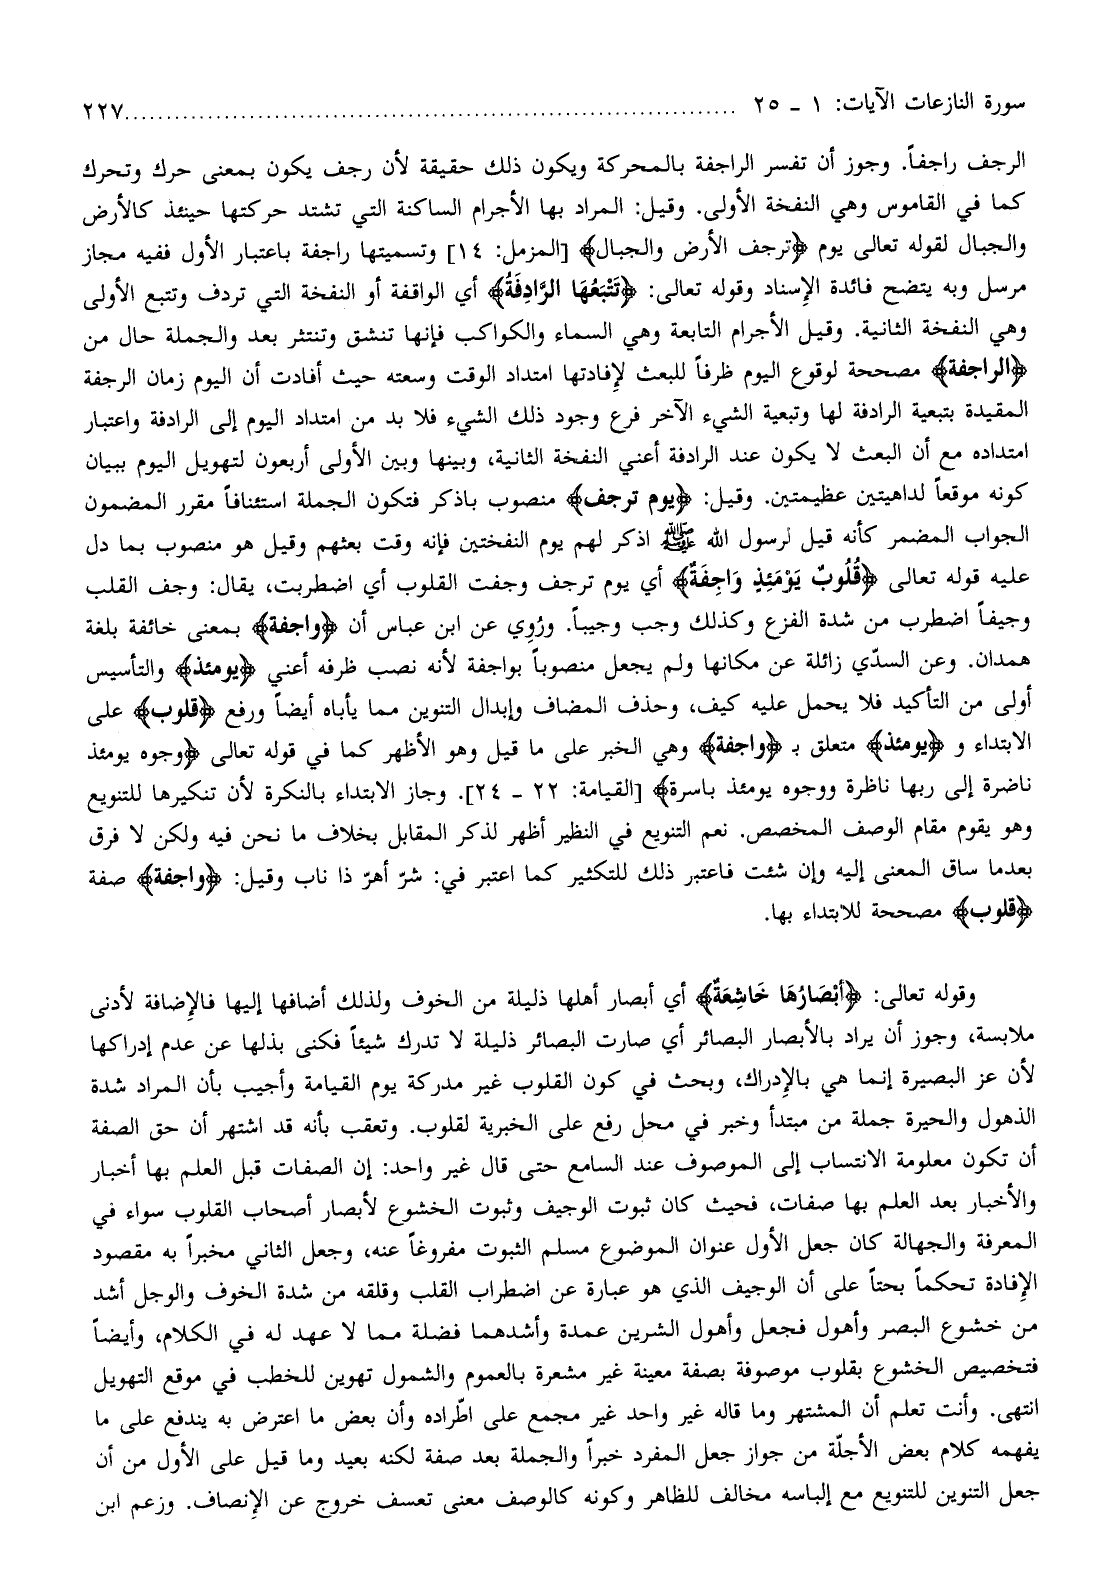 سورة النازعات الآيات: ١ ـ ٢٥ ........................................................................... ٢٢٧
الرجف راجفاً. وجوز أن تفسر الراجفة بالمحركة ويكون ذلك حقيقة لأن رجف يكون بمعنى حرك وتحرك
كما في القاموس وهي النفخة الأولى. وقيل: المراد بها الأجرام الساكنة التي تشتد حركتها حينئذ كالأرض
والجبال لقوله تعالى يوم ﴿ترجف الأرض والجبال﴾ [المزمل: ١٤] وتسميتها راجفة باعتبار الأول ففيه مجاز
مرسل وبه يتضح فائدة الإسناد وقوله تعالى: ﴿تَتْبَعُهَا الرَّادِفَةُ﴾ أي الواقفة أو النفخة التي تردف وتتبع الأولى
وهي النفخة الثانية. وقيل الأجرام التابعة وهي السماء والكواكب فإنها تنشق وتنتثر بعد والجملة حال من
﴿الراجفة﴾ مصححة لوقوع اليوم ظرفاً للبعث لإفادتها امتداد الوقت وسعته حيث أفادت أن اليوم زمان الرجفة
المقيدة بتبعية الرادفة لها وتبعية الشيء الآخر فرع وجود ذلك الشيء فلا بد من امتداد اليوم إلى الرادفة واعتبار
امتداده مع أن البعث لا يكون عند الرادفة أعني النفخة الثانية، وبينها وبين الأولى أربعون لتهويل اليوم ببيان
كونه موقعاً لداهيتين عظيمتين. وقيل: ﴿يوم ترجف﴾ منصوب باذكر فتكون الجملة استئنافاً مقرر المضمون
الجواب المضمر كأنه قيل لرسول الله ﷺ اذكر لهم يوم النفختين فإنه وقت بعثهم وقيل هو منصوب بما دل
عليه قوله تعالى ﴿قُلُوبٌ يَوْمَئِذٍ وَاجِفَةٌ﴾ أي يوم ترجف وجفت القلوب أي اضطربت، يقال: وجف القلب
وجيفاً اضطرب من شدة الفزع وكذلك وجب وجيباً. ورُوِي عن ابن عباس أن ﴿واجفة﴾ بمعنى خائفة بلغة
همدان. وعن السدّي زائلة عن مكانها ولم يجعل منصوباً بواجفة لأنه نصب ظرفه أعني ﴿يومئذ﴾ والتأسيس
أولى من التأكيد فلا يحمل عليه كيف، وحذف المضاف وإبدال التنوين مما يأباه أيضاً ورفع ﴿قلوب﴾ على
الابتداء و ﴿يومئذ﴾ متعلق بـ ﴿واجفة﴾ وهي الخبر على ما قيل وهو الأظهر كما في قوله تعالى ﴿وجوه يومئذ
ناضرة إلى ربها ناظرة ووجوه يومئذ باسرة﴾ [القيامة: ٢٢ ـ ٢٤]. وجاز الابتداء بالنكرة لأن تنكيرها للتنويع
وهو يقوم مقام الوصف المخصص. نعم التنويع في النظير أظهر لذكر المقابل بخلاف ما نحن فيه ولكن لا فرق
بعدما ساق المعنى إليه وإن شئت فاعتبر ذلك للتكثير كما اعتبر في: شرّ أهرّ ذا ناب وقيل: ﴿واجفة﴾ صفة
﴿قلوب﴾ مصححة للابتداء بها.
وقوله تعالى: ﴿أَبْصَارُهَا خَاشِعَةٌ﴾ أي أبصار أهلها ذليلة من الخوف ولذلك أضافها إليها فالإضافة لأدنى
ملابسة، وجوز أن يراد بالأبصار البصائر أي صارت البصائر ذليلة لا تدرك شيئاً فكنى بذلها عن عدم إدراكها
لأن عز البصيرة إنما هي بالإدراك، وبحث في كون القلوب غير مدركة يوم القيامة وأجيب بأن المراد شدة
الذهول والحيرة جملة من مبتدأ وخبر في محل رفع على الخبرية لقلوب. وتعقب بأنه قد اشتهر أن حق الصفة
أن تكون معلومة الانتساب إلى الموصوف عند السامع حتى قال غير واحد: إن الصفات قبل العلم بها أخبار
والأخبار بعد العلم بها صفات، فحيث كان ثبوت الوجيف وثبوت الخشوع لأبصار أصحاب القلوب سواء في
المعرفة والجهالة كان جعل الأول عنوان الموضوع مسلم الثبوت مفروغاً عنه، وجعل الثاني مخبراً به مقصود
الإفادة تحكماً بحتاً على أن الوجيف الذي هو عبارة عن اضطراب القلب وقلقه من شدة الخوف والوجل أشد
من خشوع البصر وأهول فجعل وأهول الشرين عمدة وأشدهما فضلة مما لا عهد له في الكلام، وأيضاً
فتخصيص الخشوع بقلوب موصوفة بصفة معينة غير مشعرة بالعموم والشمول تهوين للخطب في موقع التهويل
انتهى. وأنت تعلم أن المشتهر وما قاله غير واحد غير مجمع على اطّراده وأن بعض ما اعترض به يندفع على ما
يفهمه كلام بعض الأجلّة من جواز جعل المفرد خبراً والجملة بعد صفة لكنه بعيد وما قيل على الأول من أن
جعل التنوين للتنويع مع إلباسه مخالف للظاهر وكونه كالوصف معنى تعسف خروج عن الإنصاف. وزعم ابن